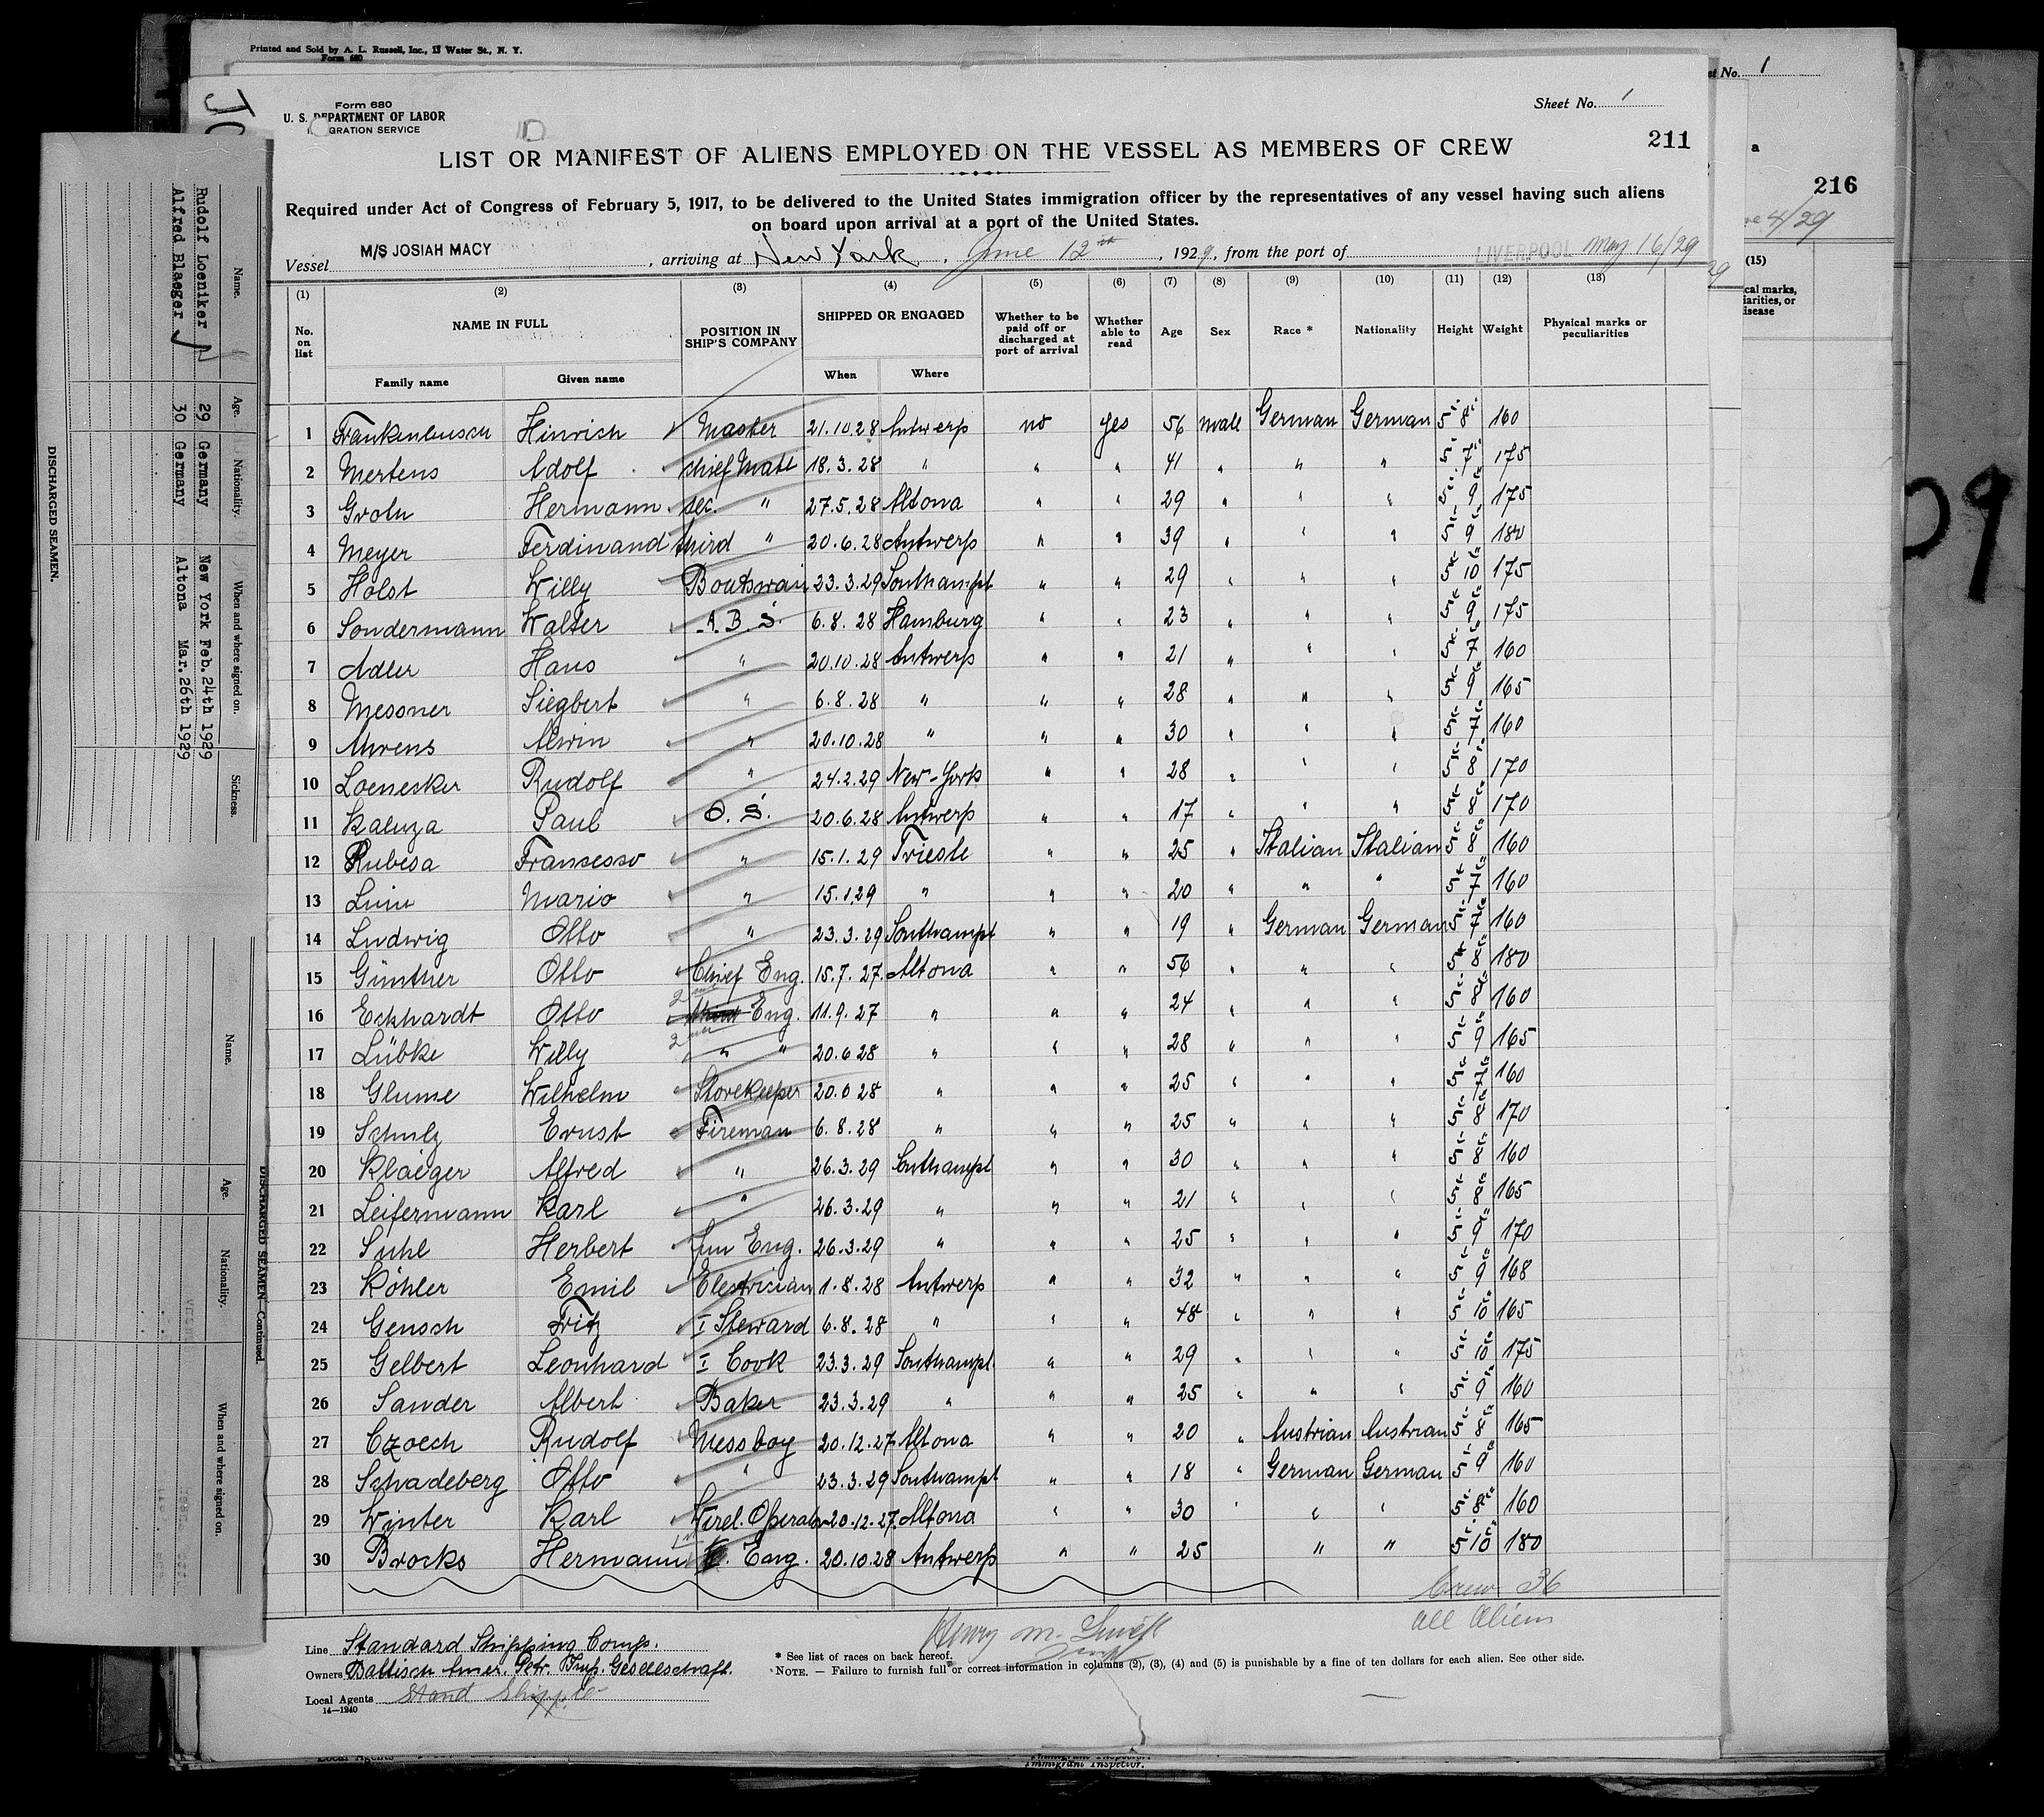 Printed and Sold by A. L. Russell, Inc., 13 Water St., N. Y.
Form 680
Sheet No. 1
216
4/29
(15)
Form 680
U. S. DEPARTMENT OF LABOR
IMMIGRATION SERVICE
Sheet No. 1
211
LIST OR MANIFEST OF ALIENS EMPLOYED ON THE VESSEL AS MEMBERS OF CREW
Required under Act of Congress of February 5, 1917, to be delivered to the United States immigration officer by the representatives of any vessel having such aliens
on board upon arrival at a port of the United States.
Vessel M/S JOSIAH MACY, arriving at New York, June 12th, 1929, from the port of LIVERPOOL May 16/29
(1) (2) (3) (4) (5) (6) (7) (8) (9) (10) (11) (12) (13)
No. on list NAME IN FULL POSITION IN SHIP'S COMPANY SHIPPED OR ENGAGED Whether to be paid off or discharged at port of arrival Whether able to read Age Sex Race * Nationality Height Weight Physical marks or peculiarities
Family name Given name When Where
1 Frankenbusch Hinrich Master 21.10.28 Antwerp no yes 56 male German German 5 8 160
2 Mertens Adolf chief Mate 18.3.28 " " " 41 " " " 5 7 175
3 Groln Hermann sec. " 27.5.28 Altona " " 29 " " " 5 9 175
4 Meyer Ferdinand third " 20.6.28 Antwerp " " 39 " " " 5 9 180
5 Holst Willy Boatswain 23.3.29 Southampt " " 29 " " " 5 10 175
6 Sondermann Walter A.B.S. 6.8.28 Hamburg " " 23 " " " 5 9 175
7 Adler Hans " 20.10.28 Antwerp " " 21 " " " 5 7 160
8 Messner Siegbert " 6.8.28 " " " 28 " " " 5 9 165
9 Ahrens Alwin " 20.10.28 " " " 30 " " " 5 7 160
10 Loenecker Rudolf " 24.2.29 New-York " " 28 " " " 5 8 170
11 Kaluza Paul O.S. 20.6.28 Antwerp " " 17 " " " 5 8 170
12 Rubesa Fransesso " 15.1.29 Trieste " " 25 " Italian Italian 5 8 160
13 Mario " 15.1.29 " " " 20 " " " 5 7 160
14 Ludwig Otto " 23.3.29 Southampt " " 19 " German German 5 7 160
15 Günther Otto Chief Eng. 15.7.27 Altona " " 56 " " " 5 8 180
16 Eckhardt Otto 2nd Eng. 11.9.27 " " " 24 " " " 5 8 160
17 Lübke Willy " " 20.6.28 " " " 28 " " " 5 9 165
18 Glume Wilhelm Storekeeper 20.0 28 " " " 25 " " " 5 7 160
19 Schulz Ernst Fireman 6.8.28 " " " 25 " " " 5 8 170
20 Klaeger Alfred " 26.3.29 Southampt " " 30 " " " 5 8 160
21 Leifermann Karl " 26.3.29 " " " 21 " " " 5 8 165
22 Suhl Herbert Jun Eng. 26.3.29 " " " 25 " " " 5 9 170
23 Köhler Emil Electrician 1.8.28 Antwerp " " 32 " " " 5 9 168
24 Gensch Fritz I Steward 6.8.28 " " " 48 " " " 5 10 165
25 Gelbert Leonhard I Cook 23.3.29 Southampt. " " 29 " " " 5 10 175
26 Sander Albert Baker 23.3.29 " " " 25 " " " 5 9 160
27 Czoech Rudolf Messboy 20.12.27 Altona " " 20 " Austrian Austrian 5 8 165
28 Schadeberg Otto " 23.3.29 Southampt " " 18 " German German 5 9 160
29 Winter Karl Wirel. Operator 20.12.27 Altona " " 30 " " " 5 8 160
30 Brocks Hermann 1st Eng. 20.10.28 Antwerp " " 25 " " 5 10 180
Crew 36
all Aliens
Line Standard Shipping Comp.
Owners Baltisch Amer. Petr. Imp. Gesellschaft.
Local Agents Stand Shipp. Co
14—1240
Henry M.
* See list of races on back hereof.
NOTE. — Failure to furnish full or correct information in columns (2), (3), (4) and (5) is punishable by a fine of ten dollars for each alien. See other side.
Immigrant Inspector.
DISCHARGED SEAMEN.
Name. Age. Nationality. When and where signed on. Sickness.
Rudolf Loeniker 29 Germany New York Feb.24th 1929
Alfred Blaeger 30 Germany Altona Mar.26th 1929
DISCHARGED SEAMEN—Continued.
Name. Age. Nationality. When and where signed on.